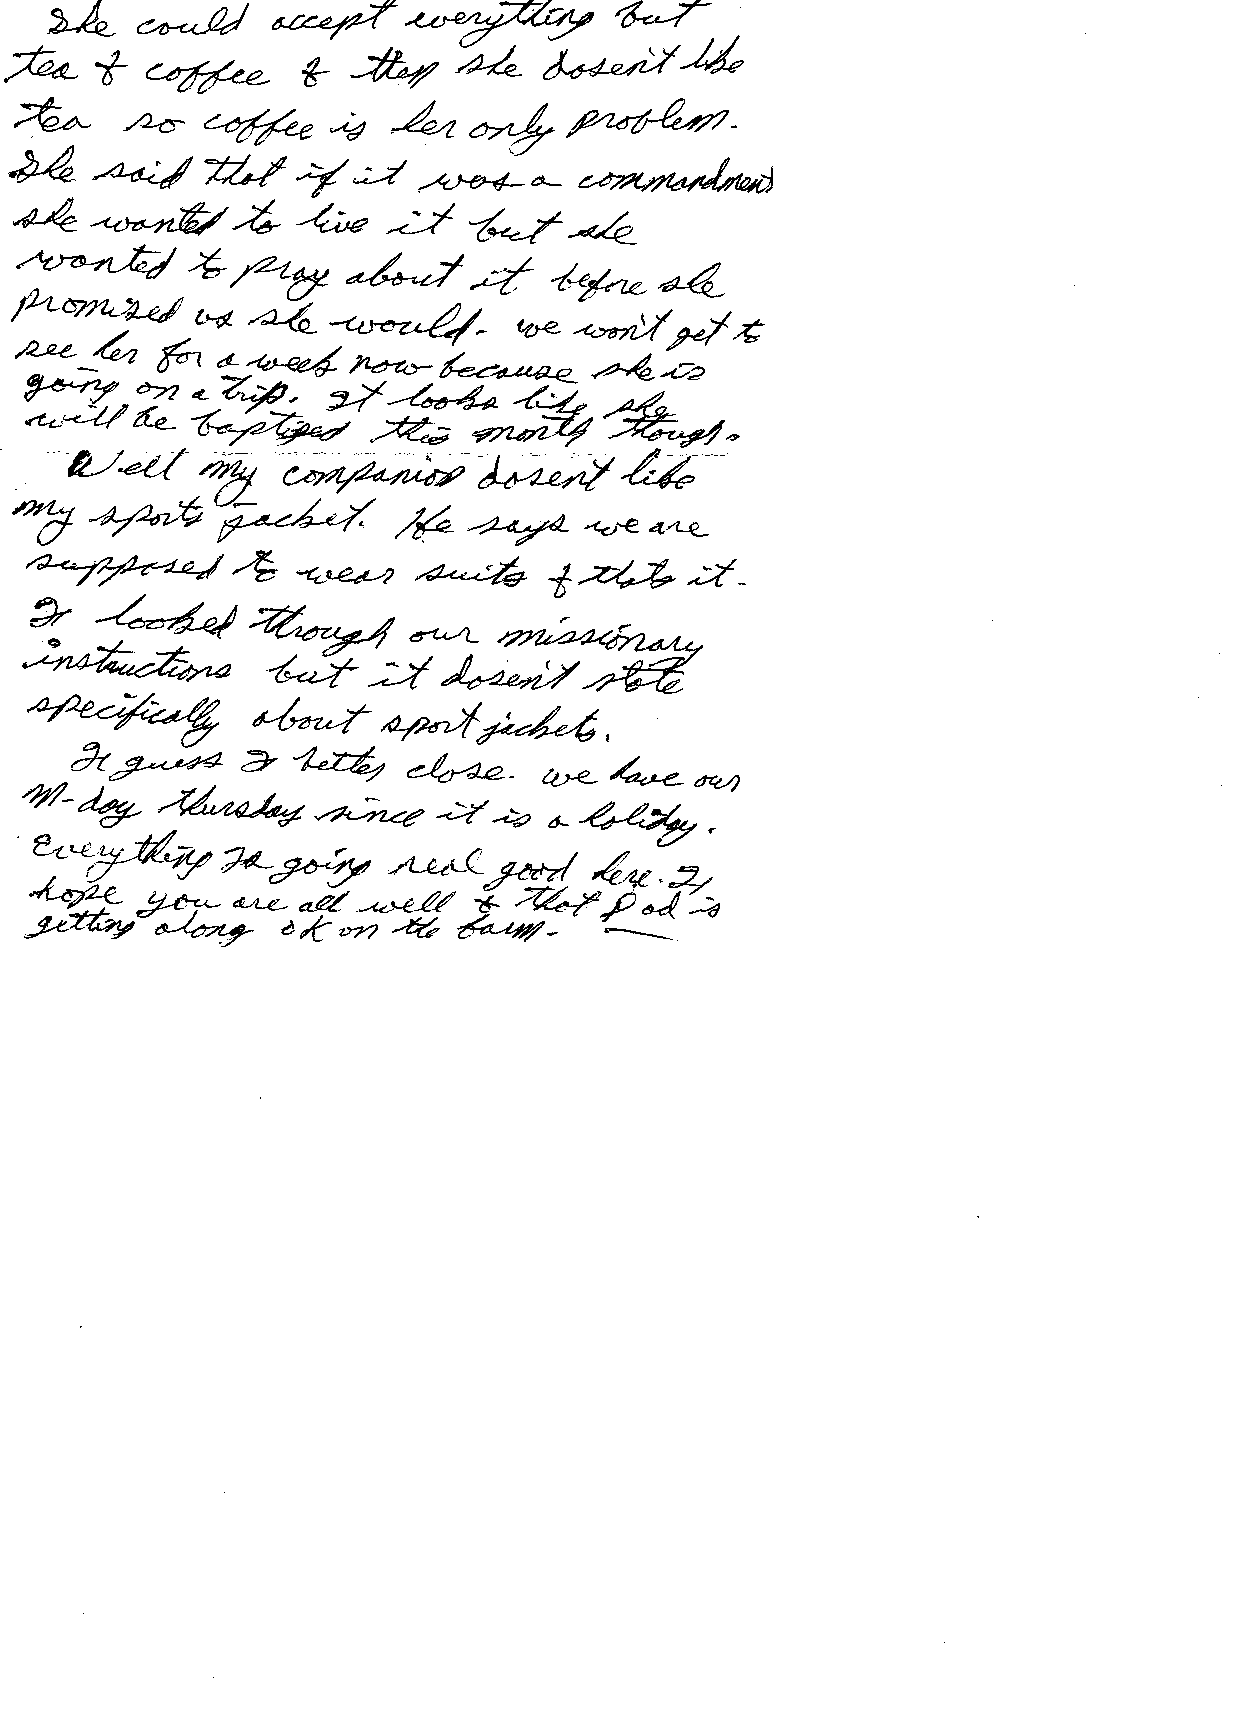 She could accept everything but
tea & coffee & then she dosen't like
tea so coffee is her only problem.
She said that if it was a commandment
she wanted to live it but she
wanted to pray about it before she
promised us she would. we won't get to
see her for a week now because she is
going on a trip. It looks like she
will be baptized this month though.
Well my companion dosent like
my sports jacket. He says we are
supposed to wear suits & thats it.
I looked through our missionary
instructions but it dosen't state
specifically about sport jackets.
I guess I better close. we have our
M-day thursday since it is a holiday.
Everything is going real good here. I
hope you are all well & that Dad is
getting along ok on the farm.